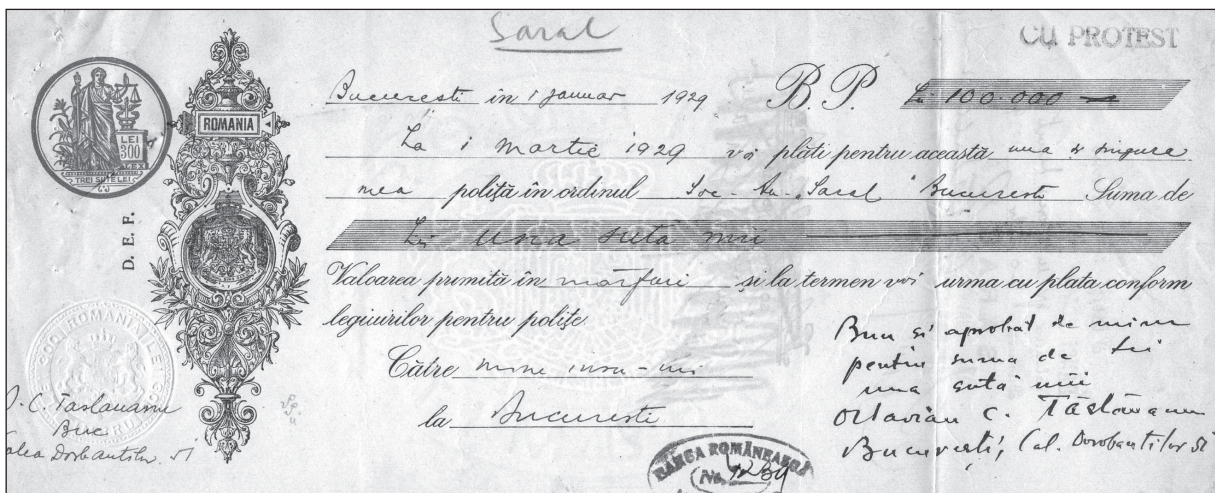 Saral
CU PROTEST
Bucuresti în 1 Januar 1929 B. P. Lei 100.000
La 1 Martie 1929 voi plăti pentru această una și singura
mea poliță în ordinul Soc. An. Saral Bucuresti Suma de
Lei Una suta mii
Valoarea primită în mărfuri și la termen voi urma cu plata conform
legiuirilor pentru polițe
Către mine insu-mi
la Bucuresti
Bun și aprobat de mine
pentru suma de lei
una sută mii
Octavian C. Tăslăuanu
București, Cal. Dorobantilor 51
ROMANIA
LEI
300
TREI SUTE LEI
D. E. F.
O. C. Taslauanu
Buc
Calea Dorobantilor 51
BANCA ROMÂNEASCĂ
No.